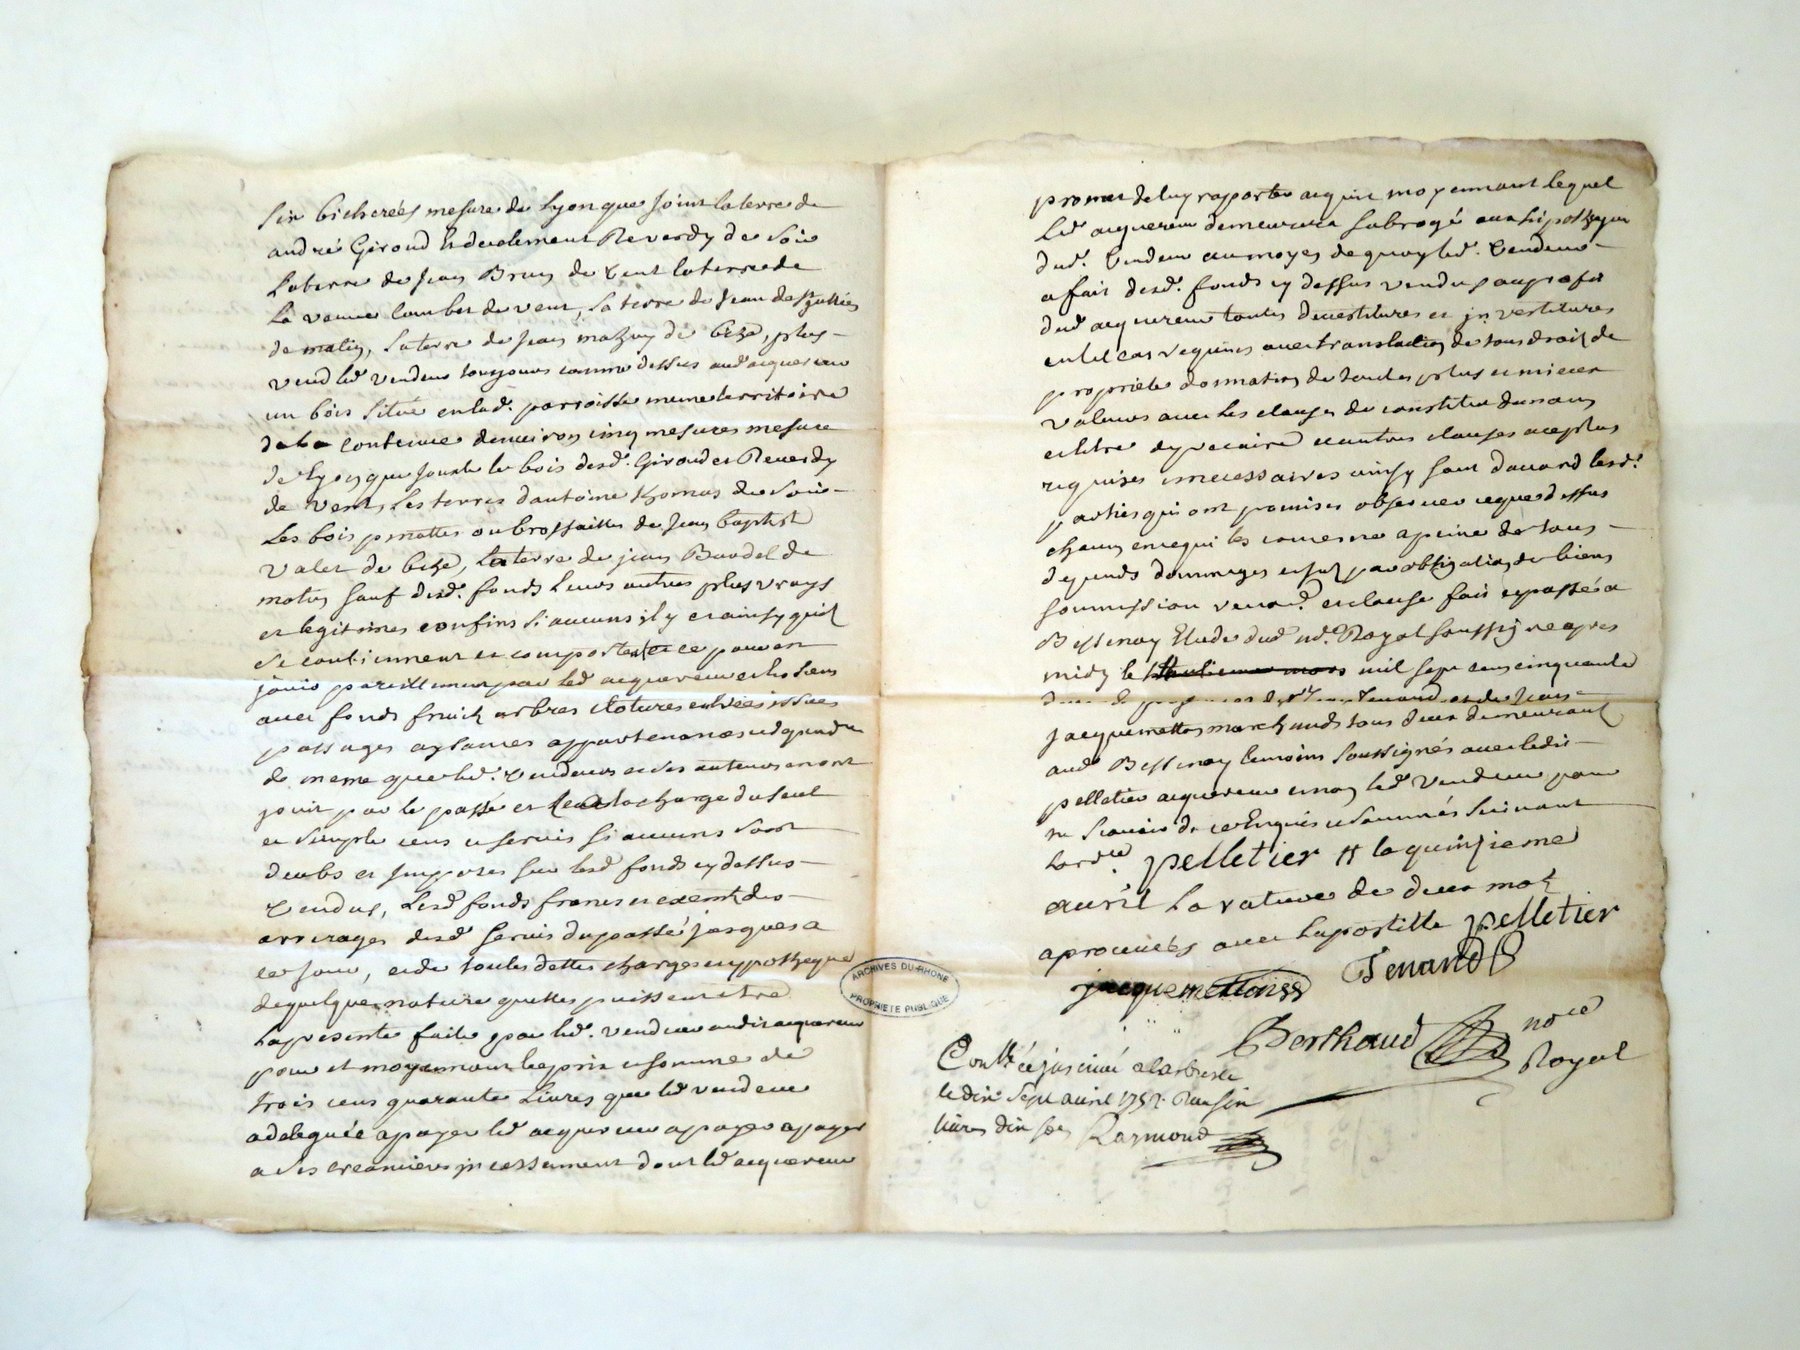 six bicherées mesure de Lyon que joint la terre de
andré Giroud et de clement Reverdy de soir
La terre de jean Brun de vent la terre de
La veuve Lombet de vent, la terre de jean
de matin, la terre de jean mathuy de bize, plus
vend led. vendeur toujours comme dessus aud. acquereur
un bois situé en lad. parroisse meme territoire
de la contenue denviron cinq mesures mesure
de Lyon que jouxte le bois desd. Giroud et Reverdy
de vent, Les terres dantoine thomas de soir
Les bois pinattes ou brossailles de jean baptist
valet de bize, La terre de jean Burdel de
matin sauf desd. fonds leurs autres plus vrays
et legitimes confins si aucuns il y et ainsy quils
se contiennent et comportent et ce pour en
jouir pareillement par led. acquereur et les siens
avec fonds fruits arbres clotures entrées issues
passages aysances appartenances dependces
de meme que led. vendeur et ses auteurs en ont
jouit par le passé et a la charge du seul
et simple cens et servis si aucuns sont
deubs et imposés sur lesd. fonds cy dessus
vendus, Lesd. fonds francs et exempts des
arrerages desd. servis du passé jusques a
ce jour, et de toutes dettes charges et ypotheques
de quelque nature quelles puissent etre
La presente faite par led. vendeur audit acquereur
pour et moyennant le prix et somme de
trois cens quarante Livres que led. vendeur
a delegué a payer led. acquereur a payer
a ses creanciers incessament dont led. acquereur
promet de luy rapporter acquit moyennant lequel
Led. acquereur demeurera subrogé aux hipotheques
dud. vendeur au moyen de quoy led. vendeur
a fait desd. fonds cy dessus vendu au profit
dud. acquereur toutes devestitures et investitures
en tel cas requises avec translation de tous droits de
propriété donnation de toutes plus et mieux
values avec les clauses de constitut
et titre de precaire et autres clauses a ce plus
requises et necessaires ainsy sont daccord lesd.
parties qui ont promises observer ce que dessus
chacun en ce qui les concerne a peine de tous
depends dommages et par obligation de biens
soumission renond. et clause fait et passé a
Bessenay Etude dud. nd. Royal soussigné apres
midy le mil sept cens cinquante
Tenand et de jean
jacquemettons marchands tous deux demeurant
aud. Bessenay temoins soussignés avec ledit
pelletier acquereur et non led. vendeur pour
ne scavoir de ce Enquis et sommés suivant
Lordce. pelletier # la quinzieme
avril La rature de deux mots
aprouvées avec lapostille pelletier
jacquemettons Tenand
Berthaud nore
Royal
Conllé et insinué a Larbresle
le dix sept avril 1757. Reçu six
livres dix sols Raymond
ARCHIVES DU RHONE
PROPRIÉTÉ PUBLIQUE